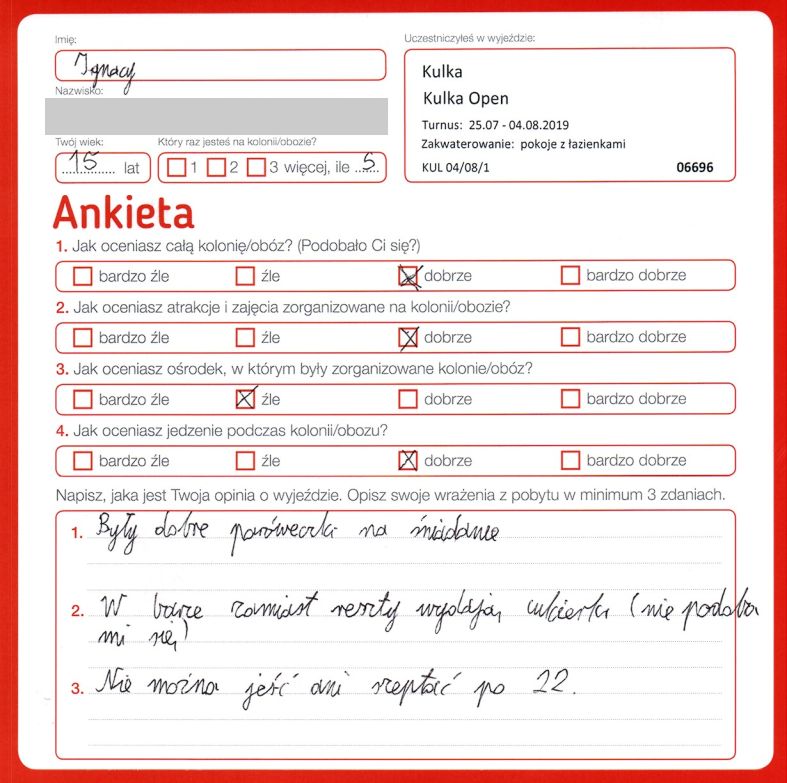 Imię:
Ignacy
Nazwisko:
Twój wiek:
15 lat
Który raz jesteś na kolonii/obozie?
1 2 3 więcej, ile 5
Uczestniczyłeś w wyjeździe:
Kulka
Kulka Open
Turnus: 25.07 - 04.08.2019
Zakwaterowanie: pokoje z łazienkami
KUL 04/08/1 06696
Ankieta
1. Jak oceniasz całą kolonię/obóz? (Podobało Ci się?)
bardzo źle źle dobrze bardzo dobrze
2. Jak oceniasz atrakcje i zajęcia zorganizowane na kolonii/obozie?
bardzo źle źle dobrze bardzo dobrze
3. Jak oceniasz ośrodek, w którym były zorganizowane kolonie/obóz?
bardzo źle źle dobrze bardzo dobrze
4. Jak oceniasz jedzenie podczas kolonii/obozu?
bardzo źle źle dobrze bardzo dobrze
Napisz, jaka jest Twoja opinia o wyjeździe. Opisz swoje wrażenia z pobytu w minimum 3 zdaniach.
1. Były dobre paróweczki na śniadanie
2. W barze zamiast reszty wydają cukierki (nie podoba
mi się)
3. Nie można jeść ani szeptać po 22.